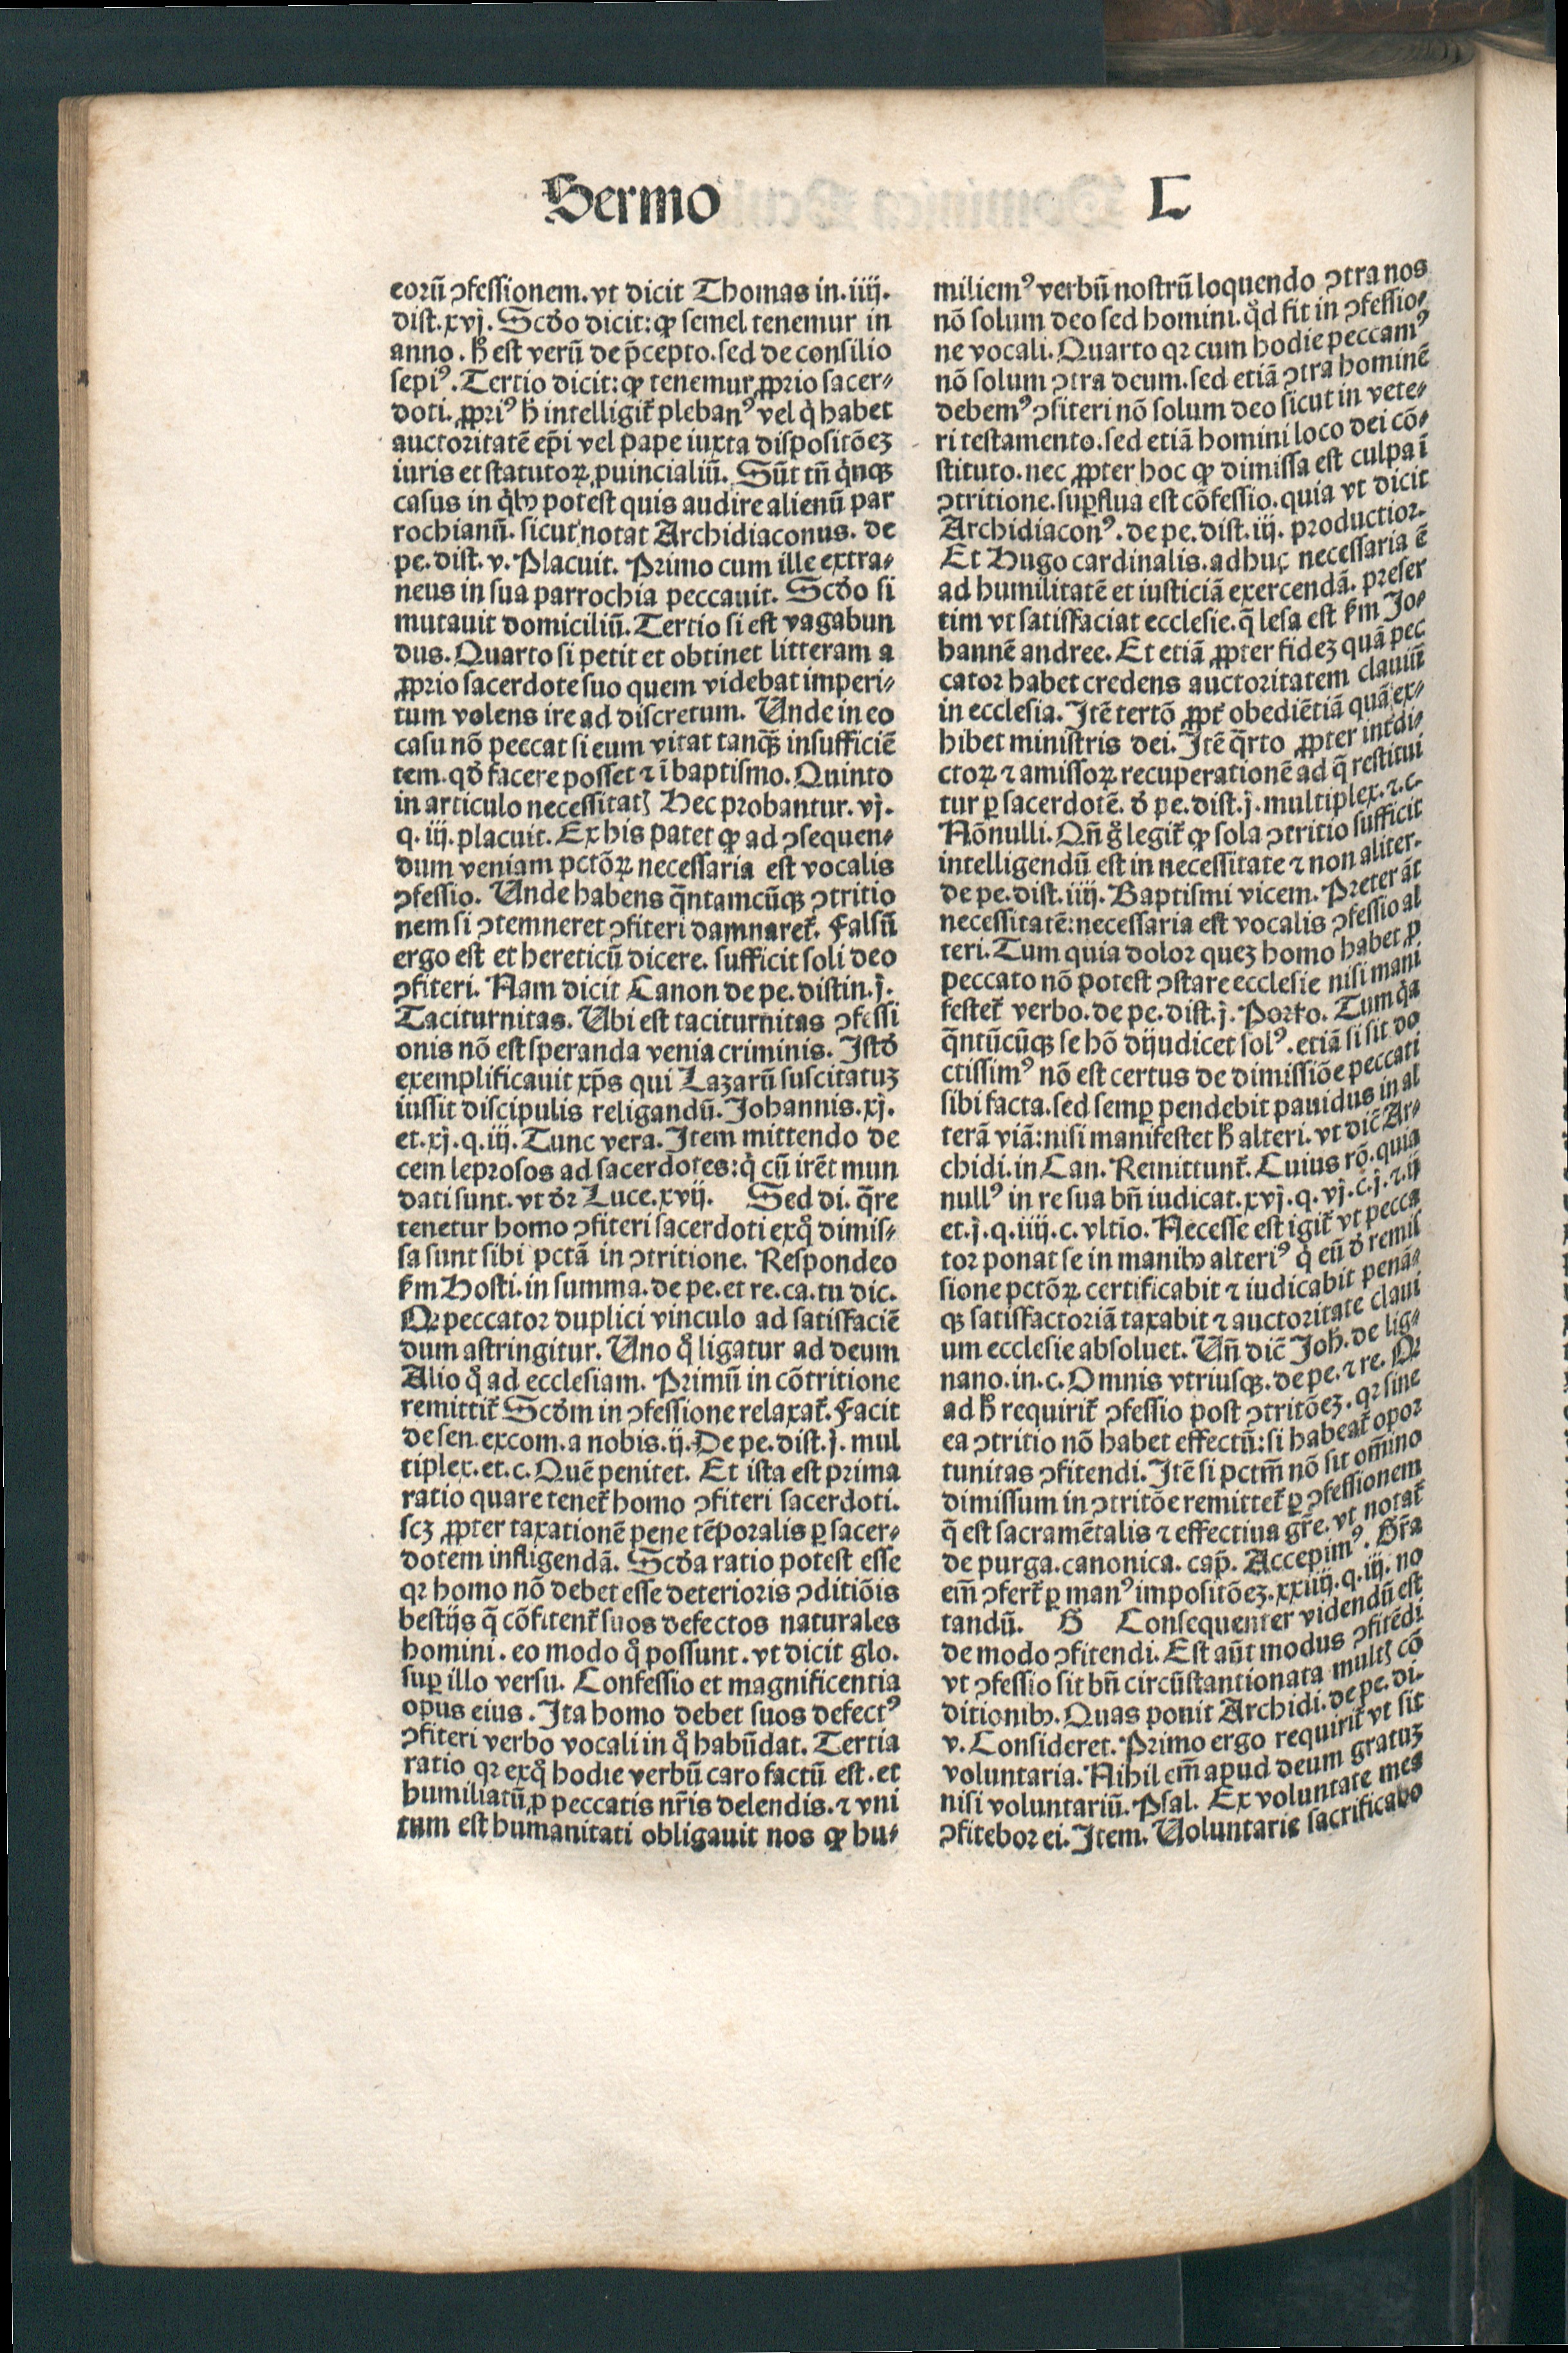 Sermo L
eorū ꝯfessionem. vt dicit Thomas in. iiij.
dist. xvj. Scđo dicit: ꝙ semel tenemur in
anno. ħ est verū de p̄cepto. sed de consilio
sepiꝰ. Tertio dicit: ꝙ tenemur ꝓprio sacer⸗
doti. ꝓpriꝰ ħ intelligit᷑ plebanꝰ vel q̇ habet
auctoritatē ep̄i vel pape iuxta dispositōeꝫ
iuris et statutoꝝ ꝓuincialiū. Sūt tn̄ q̇nqꝫ
casus in q̇bꝰ potest quis audire alienū par
rochianū. sicut notat Archidiaconus. de
pe. dist. v. Placuit. Primo cum ille extra⸗
neus in sua parrochia peccauit. Scđo si
mutauit domiciliū. Tertio si est vagabun
dus. Quarto si petit et obtinet litteram a
ꝓprio sacerdote suo quem videbat imperi⸗
tum volens ire ad discretum. Unde in eo
casu nō peccat si eum vitat tanqꝫ insufficiē
tem. qđ facere posset ⁊ ī baptismo. Quinto
in articulo necessitatꝭ Hec probantur. vj.
q. iij. placuit. Ex his patet ꝙ ad ꝯsequen⸗
dum veniam pctōꝝ necessaria est vocalis
ꝯfessio. Unde habens q̄ntamcūqꝫ ꝯtritio
nem si ꝯtemneret ꝯfiteri damnaret᷑. Falsū
ergo est et hereticū dicere. sufficit soli deo
ꝯfiteri. Nam dicit Canon de pe. distin. j.
Taciturnitas. Ubi est taciturnitas ꝯfessi
onis nō est speranda venia criminis. Istđ
exemplificauit xp̄s qui Lazarū suscitatuꝫ
iussit discipulis religandū. Johannis. xj.
et. xj. q. iij. Tunc vera. Item mittendo de
cem leprosos ad sacerdotes: q̇ cū irēt mun
dati sunt. vt đr Luce. xvij. Sed di. q̄re
tenetur homo ꝯfiteri sacerdoti exq̊ dimis⸗
sa sunt sibi pctā in ꝯtritione. Respondeo
ẜm Hosti. in summa. de pe. et re. ca. tu dic.
Qꝛ peccator duplici vinculo ad satisfaciē
dum astringitur. Uno q̊ ligatur ad deum
Alio q̊ ad ecclesiam. Primū in cōtritione
remittit᷑ Scđm in ꝯfessione relaxat᷑. Facit
de sen. excom. a nobis. ij. De pe. dist. j. mul
tiplex. et. c. Quē penitet. Et ista est prima
ratio quare tenet᷑ homo ꝯfiteri sacerdoti.
scꝫ ꝓpter taxationē pene tēporalis ꝑ sacer⸗
dotem infligendā. Scđa ratio potest esse
qꝛ homo nō debet esse deterioris ꝯditiōis
bestijs q̄ cōfitent᷑ suos defectos naturales
homini. eo modo q̊ possunt. vt dicit glo.
suꝑ illo versu. Confessio et magnificentia
opus eius. Ita homo debet suos defectꝰ
ꝯfiteri verbo vocali in q̊ habūdat. Tertia
ratio qꝛ exq̊ hodie verbū caro factū est. et
humiliatū ꝓ peccatis nr̄is delendis. ⁊ vni
tum est humanitati obligauit nos ꝙ hu⸗
miliemꝰ verbū nostrū loquendo ꝯtra nos
nō solum deo sed homini. qđ fit in ꝯfessio⸗
ne vocali. Quarto qꝛ cum hodie peccamꝰ
nō solum ꝯtra deum. sed etiā ꝯtra hominē
debemꝰ ꝯfiteri nō solum deo sicut in vete⸗
ri testamento. sed etiā homini loco dei cō⸗
stituto. nec ꝓpter hoc ꝙ dimissa est culpa ī
ꝯtritione. suꝑflua est cōfessio. quia vt dicit
Archidiaconꝰ. de pe. dist. iij. productior.
Et Hugo cardinalis. adhuc necessaria ē
ad humilitatē et iusticiā exercendā. preser
tim vt satisfaciat ecclesie. q̄ lesa est ẜm Jo⸗
hannē andree. Et etiā ꝓpter fideꝫ quā pec
cator habet credens auctoritatem clauiū
in ecclesia. Itē tertō ꝓpt᷑ obediētiā quā ex⸗
hibet ministris dei. Itē q̄rto ꝓpter int᷑di⸗
ctoꝝ ⁊ amissoꝝ recuperationē ad q̄ restitui
tur ꝑ sacerdotē. đ pe. dist. j. multiplex. ⁊. c.
Nōnulli. Qn̄ g̊ legit᷑ ꝙ sola ꝯtritio sufficit
intelligendū est in necessitate ⁊ non aliter.
de pe. dist. iiij. Baptismi vicem. Preter āt
necessitatē: necessaria est vocalis ꝯfessio al
teri. Tum quia dolor queꝫ homo habet ꝓ
peccato nō potest ꝯstare ecclesie nisi mani
festet᷑ verbo. de pe. dist. j. Porro. Tum q̇a
q̄ntūcūqꝫ se hō dijudicet solꝰ. etiā si sit do
ctissimꝰ nō est certus de dimissiōe peccati
sibi facta. sed semꝑ pendebit pauidus in al
terā viā: nisi manifestet ħ alteri. vt dic̄ Ar⸗
chidi. in Can. Remittunt᷑. Cuius rō. quia
nullꝰ in re sua bn̄ iudicat. xvj. q. vj. c. j. ⁊. ij
et. j. q. iiij. c. vltio. Necesse est igit᷑ vt pecca
tor ponat se in manibꝰ alteriꝰ q̇ eū đ remis
sione pctōꝝ certificabit ⁊ iudicabit penā⸗
qꝫ satisfactoriā taxabit ⁊ auctoritate claui
um ecclesie absoluet. Un̄ dic̄ Joħ. de lig⸗
nano. in. c. Omnis vtriusqꝫ. de pe. ⁊ re. Qꝛ
ad ħ requirit᷑ ꝯfessio post ꝯtritōeꝫ. qꝛ sine
ea ꝯtritio nō habet effectū: si habeat᷑ opor
tunitas ꝯfitendi. Itē si pctm̄ nō sit om̄ino
dimissum in ꝯtritōe remittet᷑ ꝑ ꝯfessionem
q̄ est sacramētalis ⁊ effectiua gr̄e. vt notat᷑
de purga. canonica. cap̄. Accepimꝰ. Gr̄a
em̄ ꝯfert᷑ ꝑ manꝰ impositōeꝫ. xxiiij. q. iij. no
tandū. G Consequenter videndū est
de modo ꝯfitendi. Est aūt modus ꝯfitēdi
vt ꝯfessio sit bn̄ circūstantionata multꝭ cō
ditionibꝰ. Quas ponit Archidi. de pe. di.
v. Consideret. Primo ergo requirit᷑ vt sit
voluntaria. Nihil em̄ apud deum gratuꝫ
nisi voluntariū. Psal. Ex voluntate mea
ꝯfitebor ei. Item. Uoluntarie sacrificabo